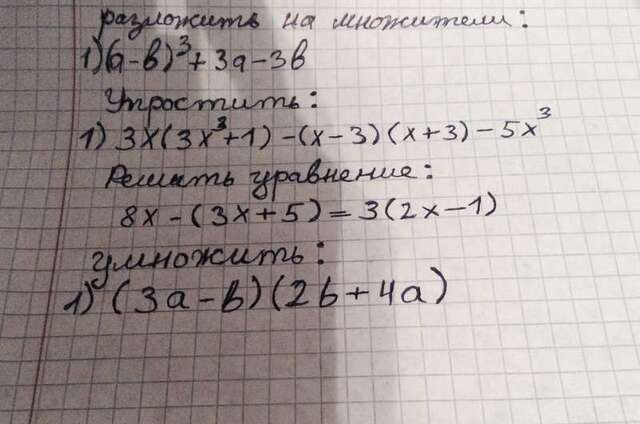 разложить на множители:
1)(a-b)³+3a-3b
Упростить:
1) 3x(3x³+1)-(x-3)(x+3)-5x³
Решить уравнение:
8x-(3x+5)=3(2x-1)
умножить:
1) (3a-b)(2b+4a)